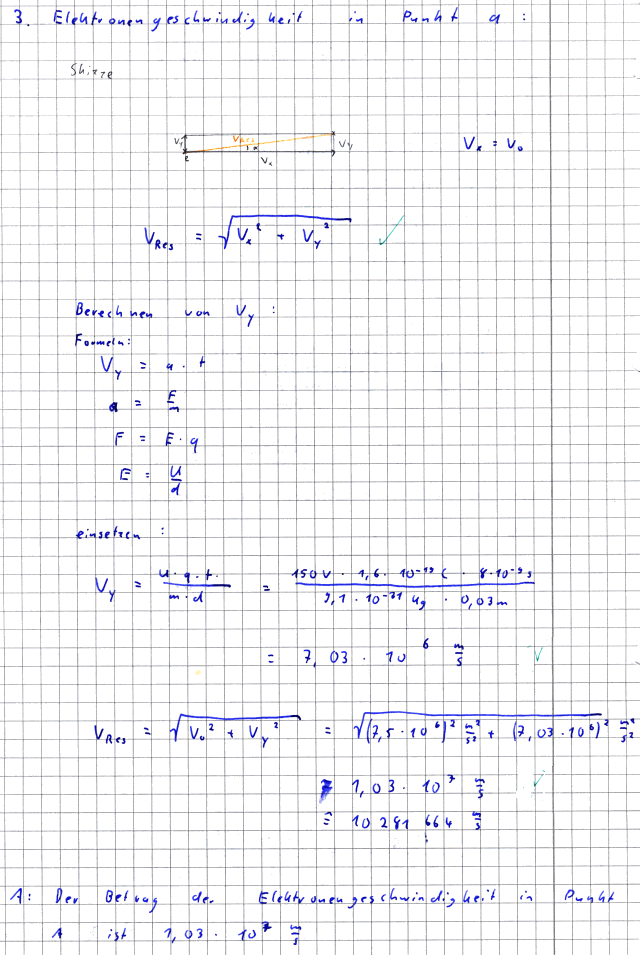 3. Elektronengeschwindigkeit in Punkt a :
Skizze
V_y V_Res V_y
α
e V_x
V_x = V_0
V_Res = √(V_x² + V_y²) ✓
Berechnen von V_y :
Formeln:
V_y = a · t
a = F/m
F = E · q
E = U/d
einsetzen :
V_y = (U · q · t.)/(m · d) = (150 V · 1,6 · 10^-19 C · 8·10^-9 s)/(9,1 · 10^-31 kg · 0,03 m)
= 7,03 · 10^6 m/s ✓
V_Res = √(V_0² + V_y²) = √((7,5 · 10^6)² m²/s² + (7,03 · 10^6)² m²/s²)
= 1,03 · 10^7 m/s ✓
≙ 10 281 664 m/s
A: Der Betrag der Elektronengeschwindigkeit in Punkt
A ist 1,03 · 10^7 m/s